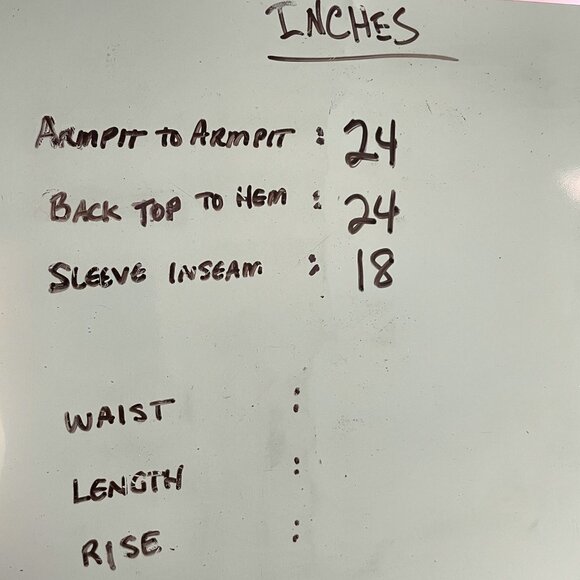 INCHES
ARMPIT TO ARMPIT : 24
BACK TOP TO HEM : 24
SLEEVE INSEAM : 18
WAIST :
LENGTH :
RISE :